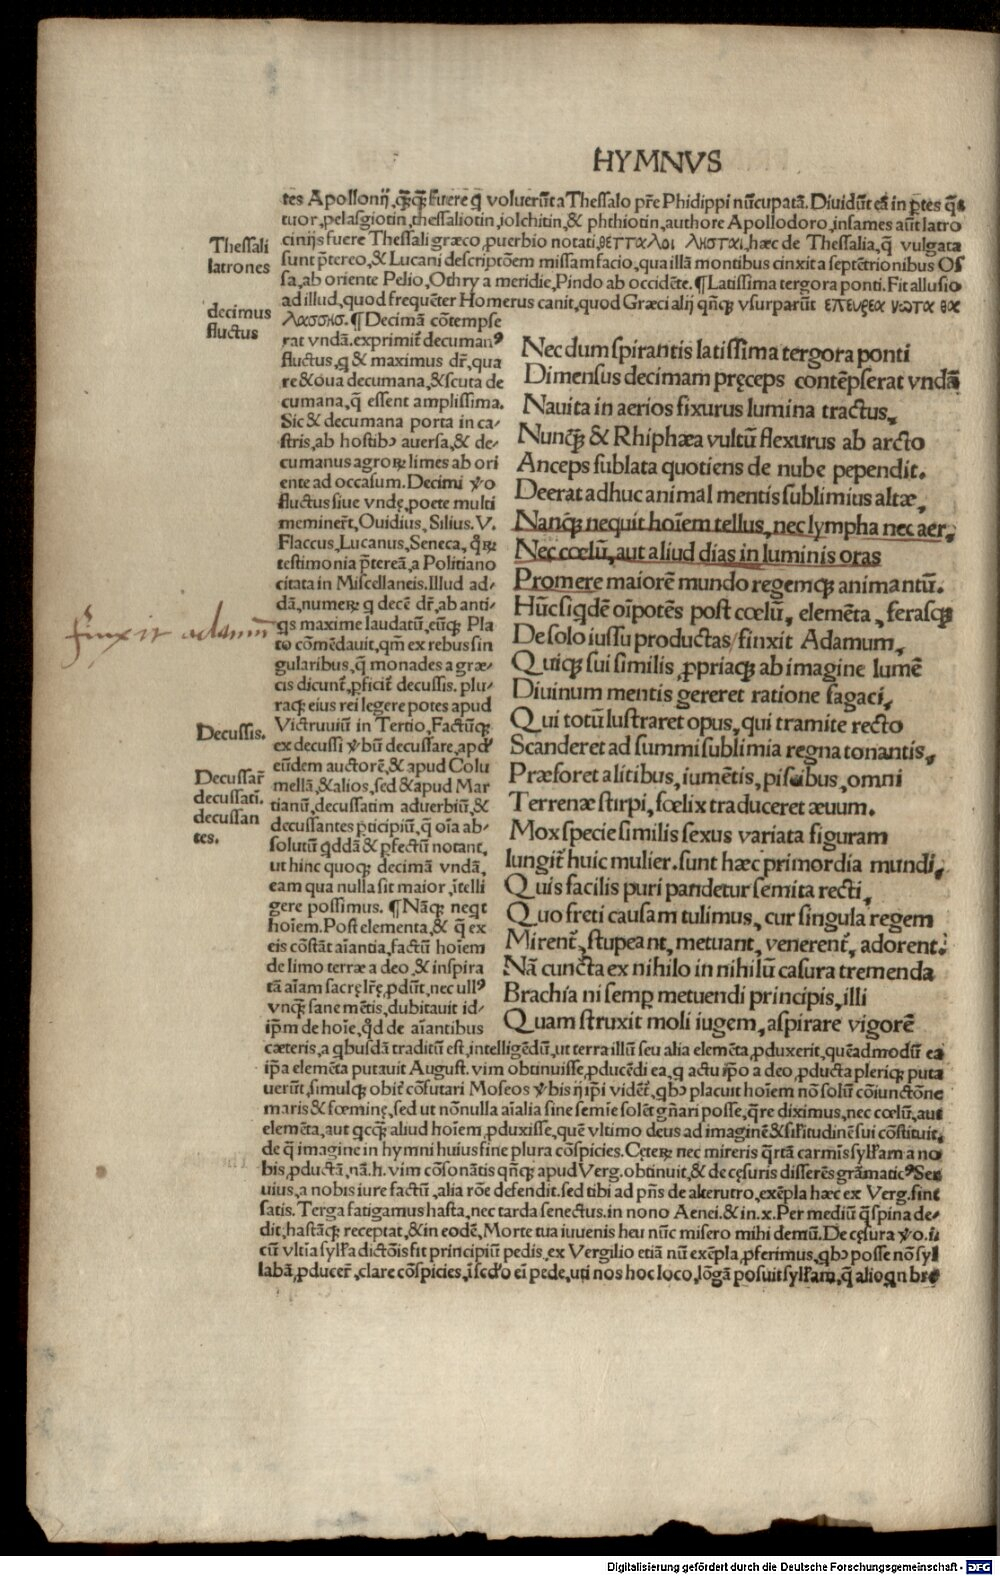 HYMNVS
tes Apollonij, ꝗꝗ fuere ꝗ voluerūt a Thessalo pr̄e Phidippi nūcupatā. Diuidūt eā in ꝑtes q̄s
tuor, pelasgiotin, thessaliotin, iolchitin, & phthiotin, authore Apollodoro, infames aūt latro
cinijs fuere Thessali græco ꝓuerbio notati, θετταλοι ληισται, hæc de Thessalia, q̄ vulgata
sunt p̄tereo, & Lucani descriptōem missam facio, qua illā montibus cinxit a septētrionibus Os
sa, ab oriente Pelio, Othry a meridie, Pindo ab occidēte. ¶ Latissima tergora ponti. Fit allusio
ad illud, quod frequēter Homerus canit, quod Græci alij qn̄ꝙ vsurparūt επευρεα νωτα θα
Thessali
latrones
decimus
fluctus
λασσης. ¶ Decimā cōtempse
rat vndā. exprimit̄ decumanꝰ
fluctus, ꝗ & maximus dr̄, qua
re & oua decumana, & scuta de
cumana, q̄ essent amplissima.
Sic & decumana porta in ca⸗
stris, ab hostibꝰ auersa, & de⸗
cumanus agroꝝ limes ab ori
ente ad occasum. Decimi ꝟo
fluctus siue vndę, poete multi
meminer̄t, Ouidius, Silius. V.
Flaccus, Lucanus, Seneca, ꝗꝝ
testimonia p̄tereā, a Politiano
citata in Miscellaneis. Illud ad⸗
dā, numeꝝ ꝗ decē dr̄, ab anti⸗
ꝗs maxime laudatū, eūꝙ Pla
to cōmēdauit, qm̄ ex rebus sin
gularibus, q̄ monades a græ⸗
cis dicunt̄, ꝑficit̄ decussis. plu⸗
raꝙ eius rei legere potes apud
Victruuiū in Tertio, Factūꝙ
ex decussi ꝟbū decussare, apd̄
eūdem auctorē, & apud Colu
mellā, & alios, sed & apud Mar
tianū, decussatim aduerbiū, &
decussantes ꝑticipiū, q̄ oīa ab⸗
solutū ꝗddā & ꝑfectū notant,
ut hinc quoꝙ decimā vndā,
eam qua nulla sit maior, ītelli
gere possimus. ¶ Nāꝙ neqt
hoīem. Post elementa, & q̄ ex
eis cōstāt aīantia, factū hoīem
de limo terræ a deo, & inspira
tā aīam sacrę lr̄ę ꝓdūt, nec ullꝰ
vnꝗ sane mētis, dubitauit id⸗
ip̄m de hoīe, ꝗd de aīantibus
finxit adamū
Decussis.
Decussar̄
decussatī.
decussan
tes.
Nec dum spirantis latissima tergora ponti
Dimensus decimam pręceps contēpserat vndā
Nauita in aerios fixurus lumina tractus,
Nunꝗ & Rhiphæa vultū flexurus ab arcto
Anceps sublata quotiens de nube pependit.
Deerat adhuc animal mentis sublimius altæ,
Nanꝗ nequit hoīem tellus, nec lympha nec aer,
Nec cœlū, aut aliud dias in luminis oras
Promere maiorē mundo regemꝙ animantū.
Hūc siqdē oīpotēs post cœlū, elemēta, ferasꝙ
De solo iussu productas/finxit Adamum,
Quiꝙ sui similis, ꝓpriaꝙ ab imagine lumē
Diuinum mentis gereret ratione sagaci,
Qui totū lustraret opus, qui tramite recto
Scanderet ad summi sublimia regna tonantis,
Præforet alitibus, iumētis, piscibus, omni
Terrenæ stirpi, fœlix traduceret æuum.
Mox specie similis sexus variata figuram
Iungit̄ huic mulier. sunt hæc primordia mundi,
Quis facilis puri pandetur semita recti,
Quo freti causam tulimus, cur singula regem
Mirent̄, stupeant, metuant, venerent̄, adorent:
Nā cuncta ex nihilo in nihilū casura tremenda
Brachia ni semꝑ metuendi principis, illi
Quam struxit moli iugem, aspirare vigorē
cæteris, a ꝗbusdā traditū est, intelligēdū, ut terra illū seu alia elemēta ꝓduxerit, quēadmodū ea
ip̄a elemēta putauit August. vim obtinuisse, ꝓducēdi ea, ꝗ actu ip̄o a deo ꝓducta pleriꝙ puta
uerūt, simulꝙ obit̄ cōfutari Moseos ꝟbis ij ip̄i vidēt̄. ꝗbꝰ placuit hoīem nō solū cōiunctōne
maris & fœminę, sed ut nōnulla aīalia sine semīe solēt gn̄ari posse, q̄re diximus, nec cœlū, aut
elemēta, aut ꝗcꝗ aliud hoīem ꝓduxisse, quē vltimo deus ad imaginē & sīlitudinē sui cōstituit,
de q̄ imagine in hymni huius fine plura cōspicies. Cęteꝝ nec mireris q̄rtā carmīs syllam a no
bis ꝓductā, nā. h. vim cōsonātis qn̄ꝙ apud Verg. obtinuit, & de cęsuris disserēs grāmaticꝰ Ser
uius, a nobis iure factū, alia rōe defendit. sed tibi ad pn̄s de alterutro, exēpla hæc ex Verg. sint
satis. Terga fatigamus hasta, nec tarda senectus. in nono Aenei. & in. x. Per mediū q̄ spina de⸗
dit, hastāꝙ receptat, & in eodē, Morte tua iuuenis heu nūc misero mihi demū. De cęsura ꝟo. ī
cū vltīa sylla dictōis fit principiū pedis, ex Vergilio etiā nū exēpla ꝓferimus, ꝗbꝰ posse nō syl
labā ꝓducer̄, clare cōspicies, ī secdo eī pede, uti nos hoc loco, lōgā posuit syllam, q̄ alioqn bre
Digitalisierung gefördert durch die Deutsche Forschungsgemeinschaft - DFG